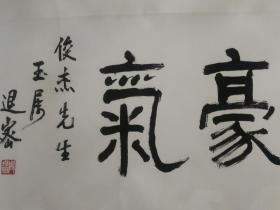 豪氣
俊杰先生
玉属
退密